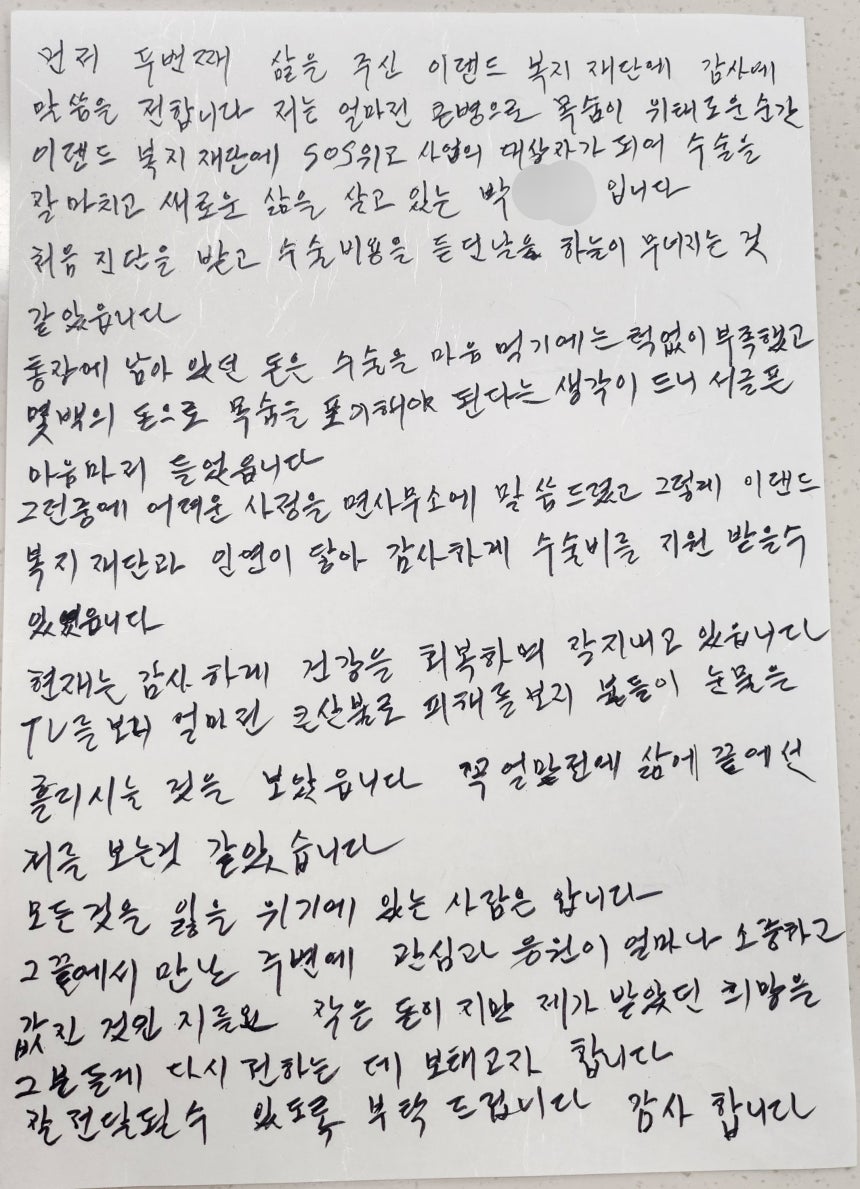 먼저 두번째 삶을 주신 이랜드 복지 재단에 감사에
말씀을 전합니다 저는 얼마전 큰병으로 목숨이 위태로운순간
이랜드 복지 재단에 SOS위고 사업의 대상자가 되어 수술을
잘 마치고 새로운 삶을 살고 있는 박 입니다
처음 진단을 받고 수술비용을 듣던날은 하늘이 무너지는 것
같았읍니다
통장에 남아 있던 돈은 수술을 마음 먹기에는 턱없이 부족했고
몇백의 돈으로 목숨을 포기해야 된다는 생각이 드니 서글픈
마음마저 들었읍니다
그런중에 어려운 사정을 면사무소에 말씀드렸고 그렇게 이랜드
복지 재단과 인연이 닿아 감사하게 수술비를 지원 받을수
있었읍니다
현재는 감사하게 건강을 회복하며 잘지내고 있읍니다
TV를보며 얼마전 큰산불로 피해를보신 분들이 눈물을
흘리시는 것을 보았읍니다 꼭 얼말전에 삶에 끝에선
저를 보는것 같았습니다
모든것을 잃을 위기에 있는 사람은 압니다
그 끝에서 만난 주변에 관심과 응원이 얼마나 소중하고
값진 것인 지를요 작은 돈이 지만 제가 받았던 희망을
그분들께 다시 전하는 데 보태고자 합니다
잘 전달될수 있도록 부탁 드립니다 감사 합니다